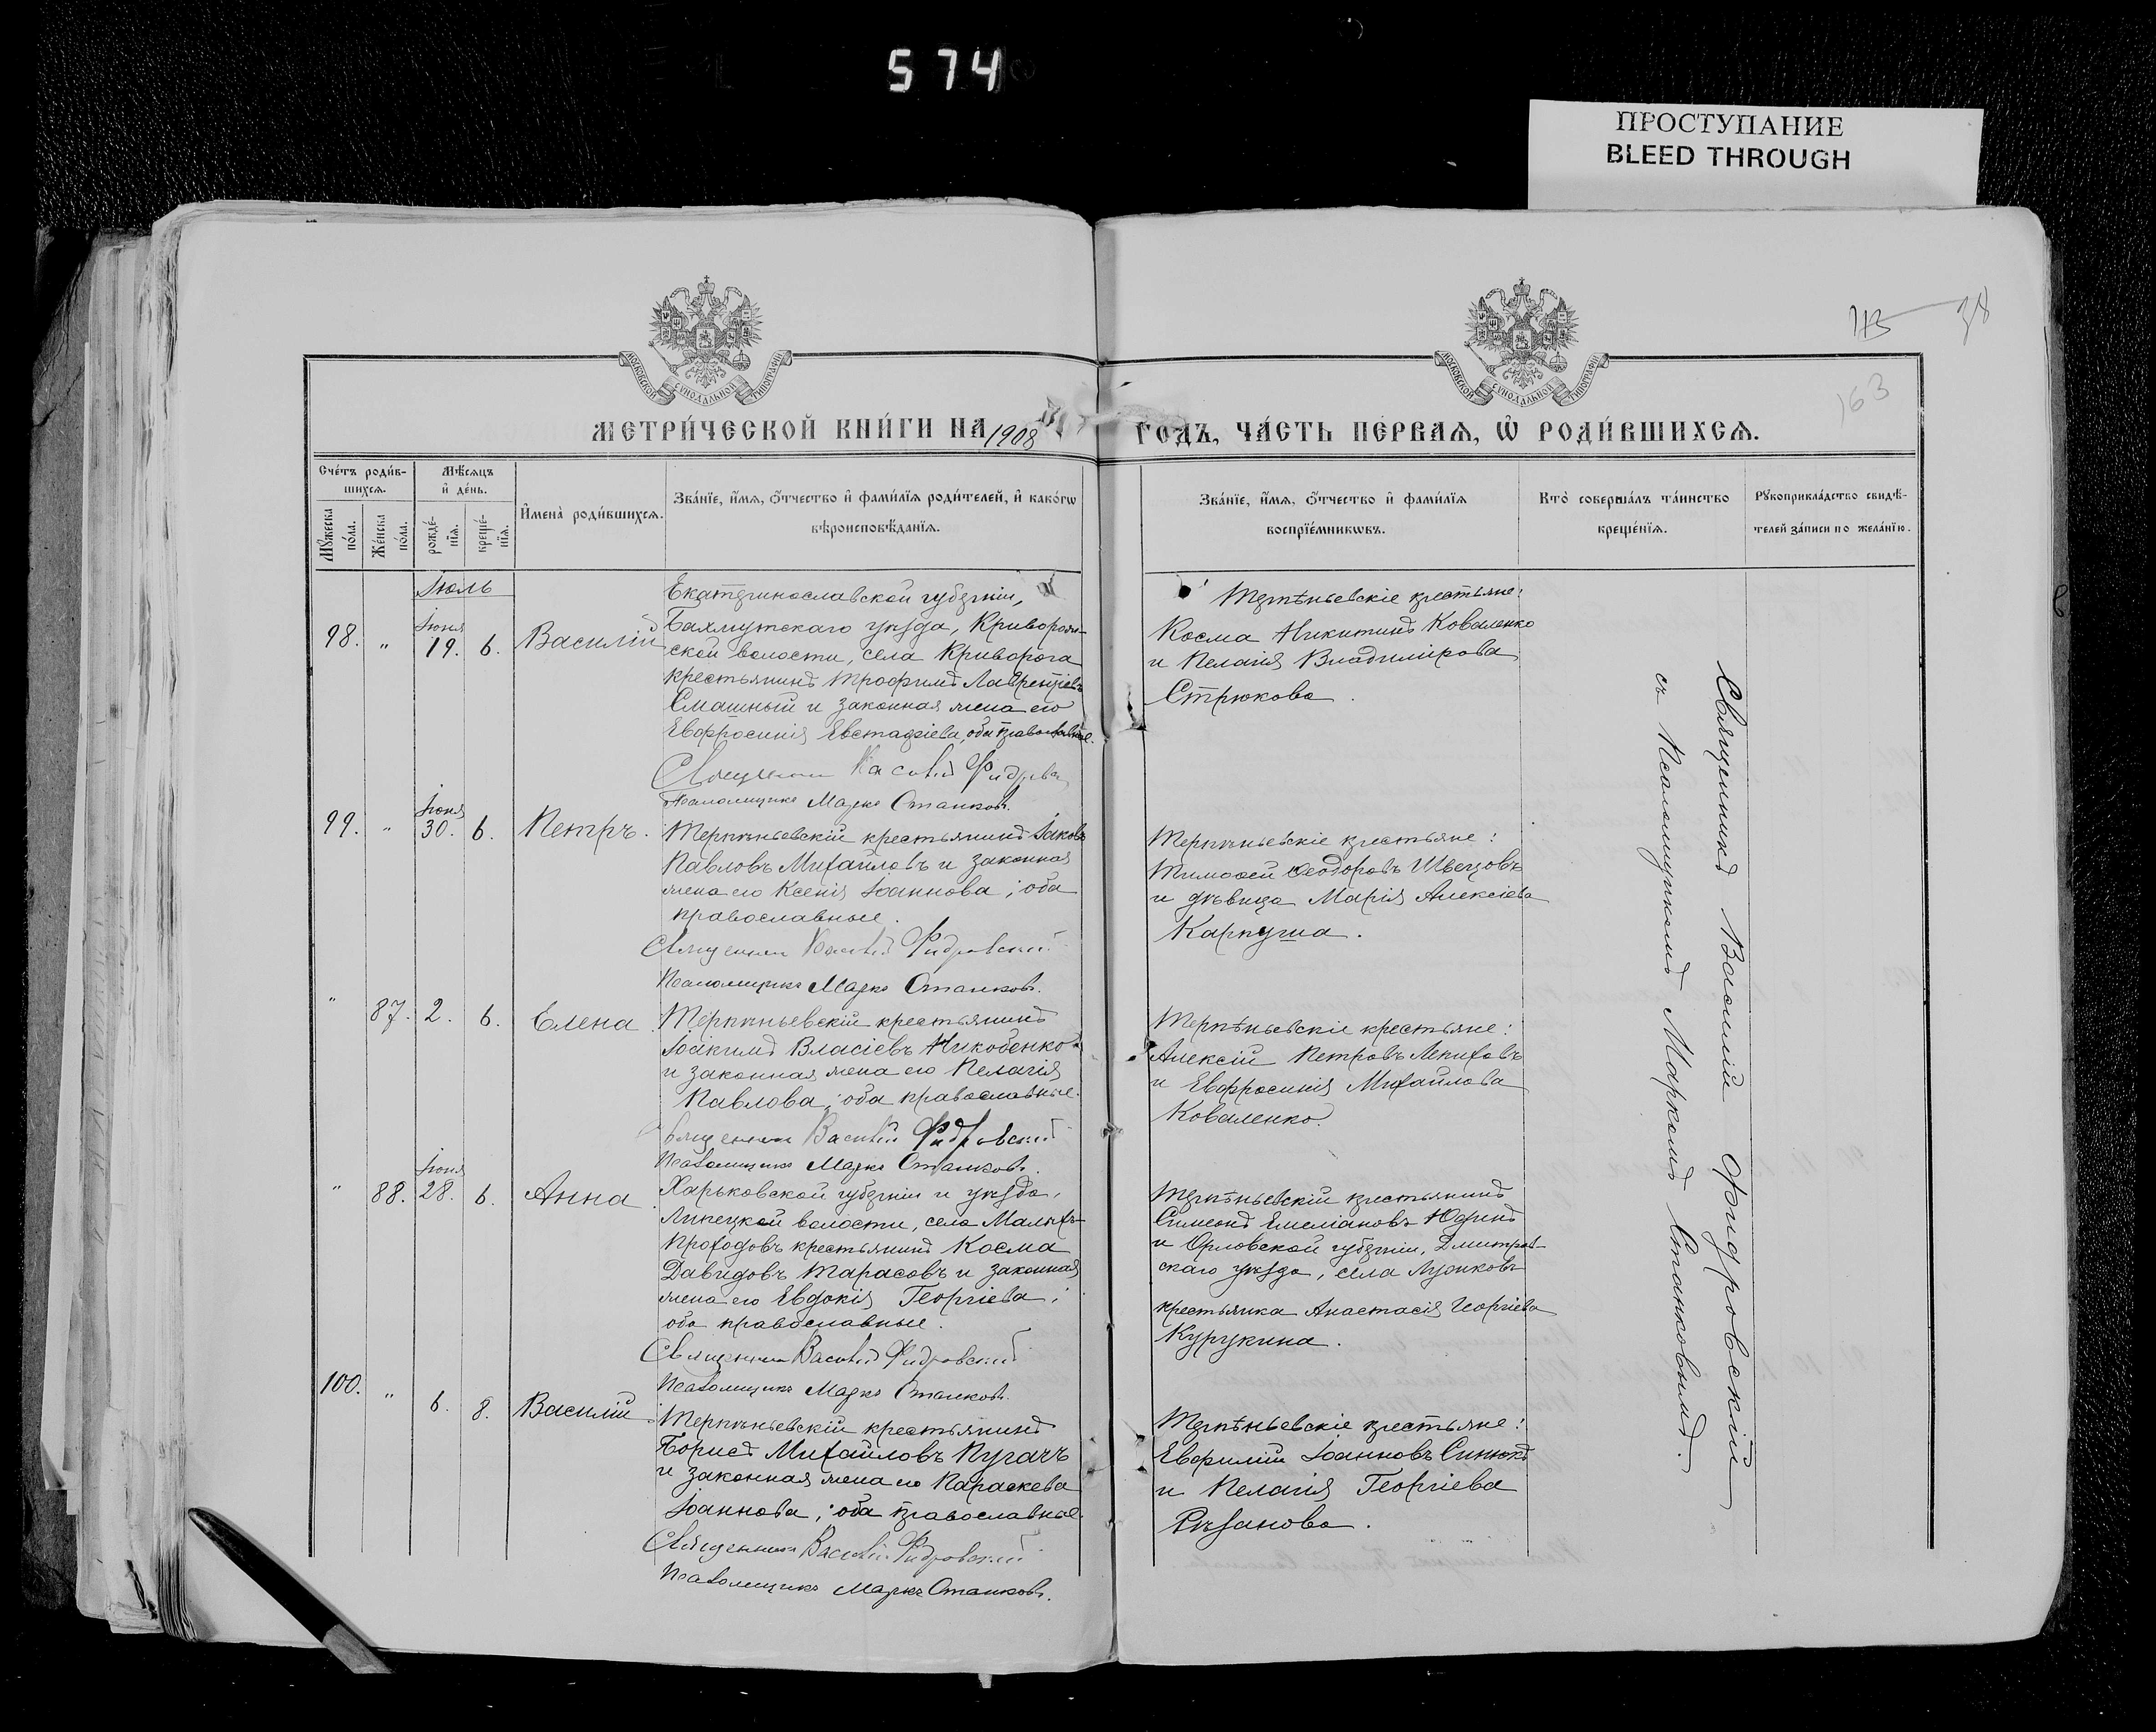 574
ПРОСТУПАНИЕ
BLEED THROUGH
38
163
МОСКОВСКОЙ СѴНОДАЛЬНОЙ ТИПОГРАФІИ
МОСКОВСКОЙ СѴНОДАЛЬНОЙ ТИПОГРАФІИ
МЕТРИ́ЧЕСКОЙ КНИ́ГИ НА 1908 ГОДЪ, ЧА́СТЬ ПЕ́РВАѦ, Ѡ РОДИ́ВШИХСѦ.
Сче́тъ роди́в-
шихсѧ.
Мꙋжеска
по́ла.
Же́нска
по́ла.
Мѣ́сѧцъ
и҆ де́нь.
рожде́-
нїѧ.
креще́-
нїѧ.
И҆мена̀ роди́вшихсѧ.
Зва́нїе, и҆́мѧ, ѻ҆́тчество и҆ фами́лїѧ роди́телей, и҆ како́гѡ
вѣроисповѣ́данїѧ.
Зва́нїе, и҆́мѧ, ѻ҆́тчество и҆ фами́лїѧ
воспрїе́мникѡвъ.
Кто̀ соверша́лъ та́инство
креще́нїѧ.
Рꙋкоприкла́дство свидѣ́-
телей за́писи по жела́нїю.
Іюль
98. " Іюня 19. 6. Василій
Екатеринославской губерніи,
Бахмутскаго уѣзда, Криворож-
ской волости, села Криворога
крестьянинъ Трофимъ Лаврентіевъ
Смашный и законная жена его
Евфросинія Евстафіева, оба православные.
Священникъ Василій Фидровскій
Псаломщикъ Маркъ Станковъ.
Терпѣньевскіе крестьяне:
Косма Никитинъ Коваленко
и Пелагія Владимірова
Стрюкова.
99. " Іюня 30. 6. Петръ.
Терпѣньевскій крестьянинъ Іаковъ
Павловъ Михайловъ и законная
жена его Ксенія Іоаннова; оба
православные.
Священникъ Василій Фидровскій
Псаломщикъ Маркъ Станковъ.
Терпѣньевскіе крестьяне:
Тимофей Ѳеодоровъ Швецовъ
и дѣвица Марія Алексіева
Карпуша.
" 87. 2. 6. Елена.
Терпѣньевскій крестьянинъ
Іоакимъ Власіевъ
и законная жена его Пелагія
Павлова; оба православные.
Священникъ Василій Фидровскій
Псаломщикъ Маркъ Станковъ.
Терпѣньевскіе крестьяне:
Алексій Петровъ Лепиховъ
и Евфросинія Михайлова
Коваленко.
" 88. Іюня 28. 6. Анна.
Харьковской губерніи и уѣзда,
Липецкой волости, села Малыхъ
Проходовъ крестьянинъ Косма
Давидовъ Тарасовъ и законная
жена его Евдокія Георгіева;
оба православные.
Священникъ Василій Фидровскій
Псаломщикъ Маркъ Станковъ.
Терпѣньевскій крестьянинъ
Симеонъ Емеліановъ Юдинъ
и Орловской губерніи, Дмитров-
скаго уѣзда, села
крестьянка Анастасія Георгіева
Курукина.
100. " 6. 8. Василій.
Терпѣньевскій крестьянинъ
Борисъ Михайловъ Пугачъ
и законная жена его Параскева
Іоаннова; оба православные.
Священникъ Василій Фидровскій
Псаломщикъ Маркъ Станковъ.
Терпѣньевскіе крестьяне:
Евфимій Іоанновъ Синюкъ
и Пелагія Георгіева
Рѣзанова.
Священникъ Василій Фидровскій
съ Псаломщикомъ Маркомъ Станковымъ.